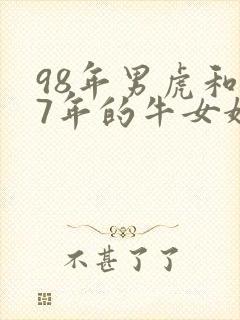 98年男虎和
7年的牛女
不甚了了